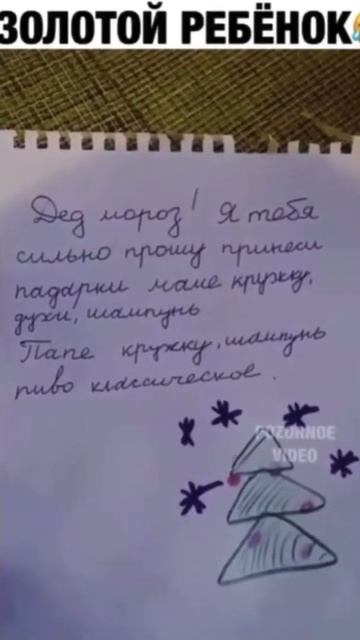 ЗОЛОТОЙ РЕБЁНОК
Дед мороз! Я тебя
сильно прошу принеси
падарки маме кружку,
духи, шампунь
Папе кружку, шампунь
пиво классическое.
POZORNOE
VIDEO